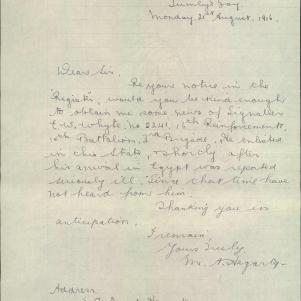 Monday 21st August, 1916.
Dear Sir.
Re your notice in the
"Register", would you be kind enough
to obtain me some news of Signaller
E. W. Whyte, No 5241, 16th Reinforcements,
10th Battalion, 3rd Brigade. He enlisted
in this State, & shortly after
his arrival in Egypt was reported
seriously ill. Since that time have
not heard from him.
Thanking you in
anticipation.
I remain
Yours truly
Address